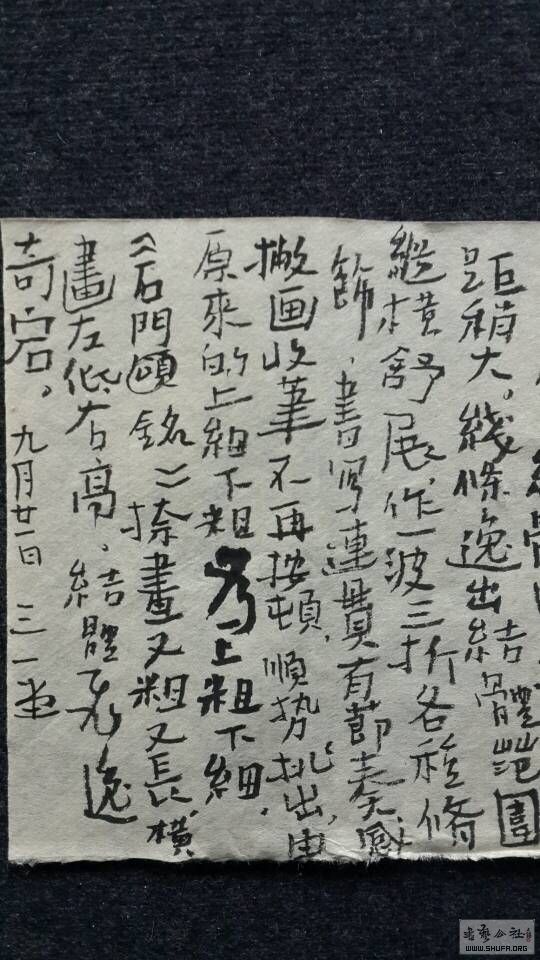 距稍大。綫條逸出結體範圍
縱横舒展，作一波三折各种修
飾，書写連貫有節奏感
撇画收筆不再按頓，順势挑出，由
原來的上細下粗為上粗下細，
《石門頌銘》捺畫又粗又長，横
畫左低右高，結體 逸
奇宕。九月廿一日 三一堂
书艺公社
WWW.SHUFA.ORG